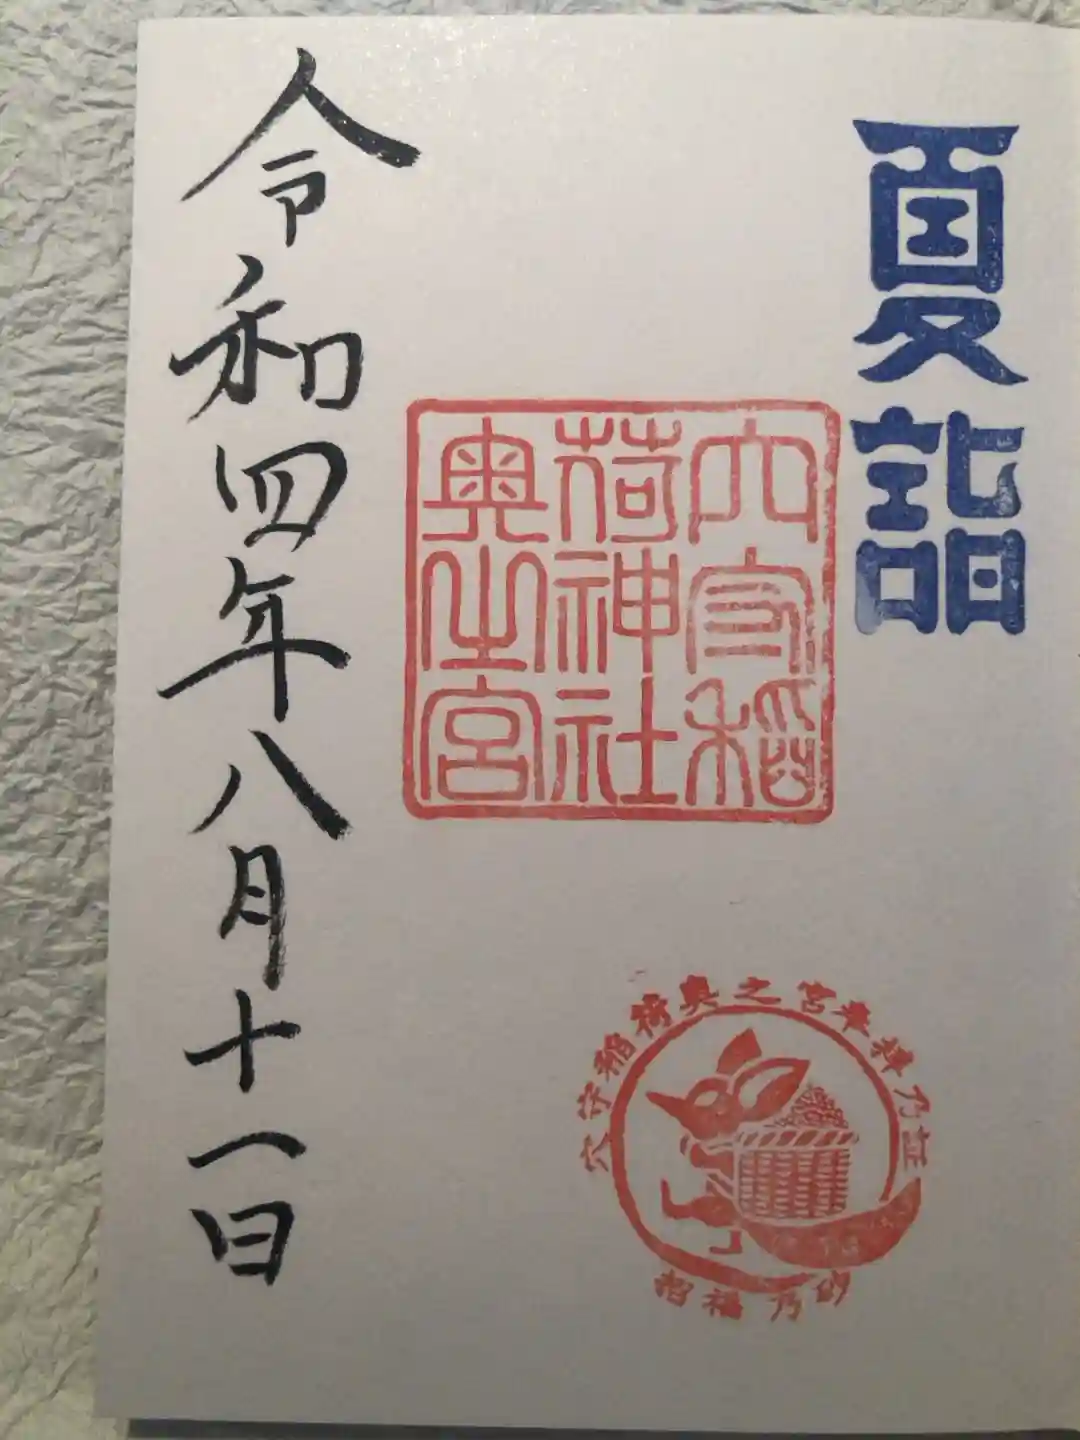 夏詣
穴守稲
荷神社
奥之宮
穴守稲荷奥之宮奉拝乃証
招福乃砂
令和四年八月十一日